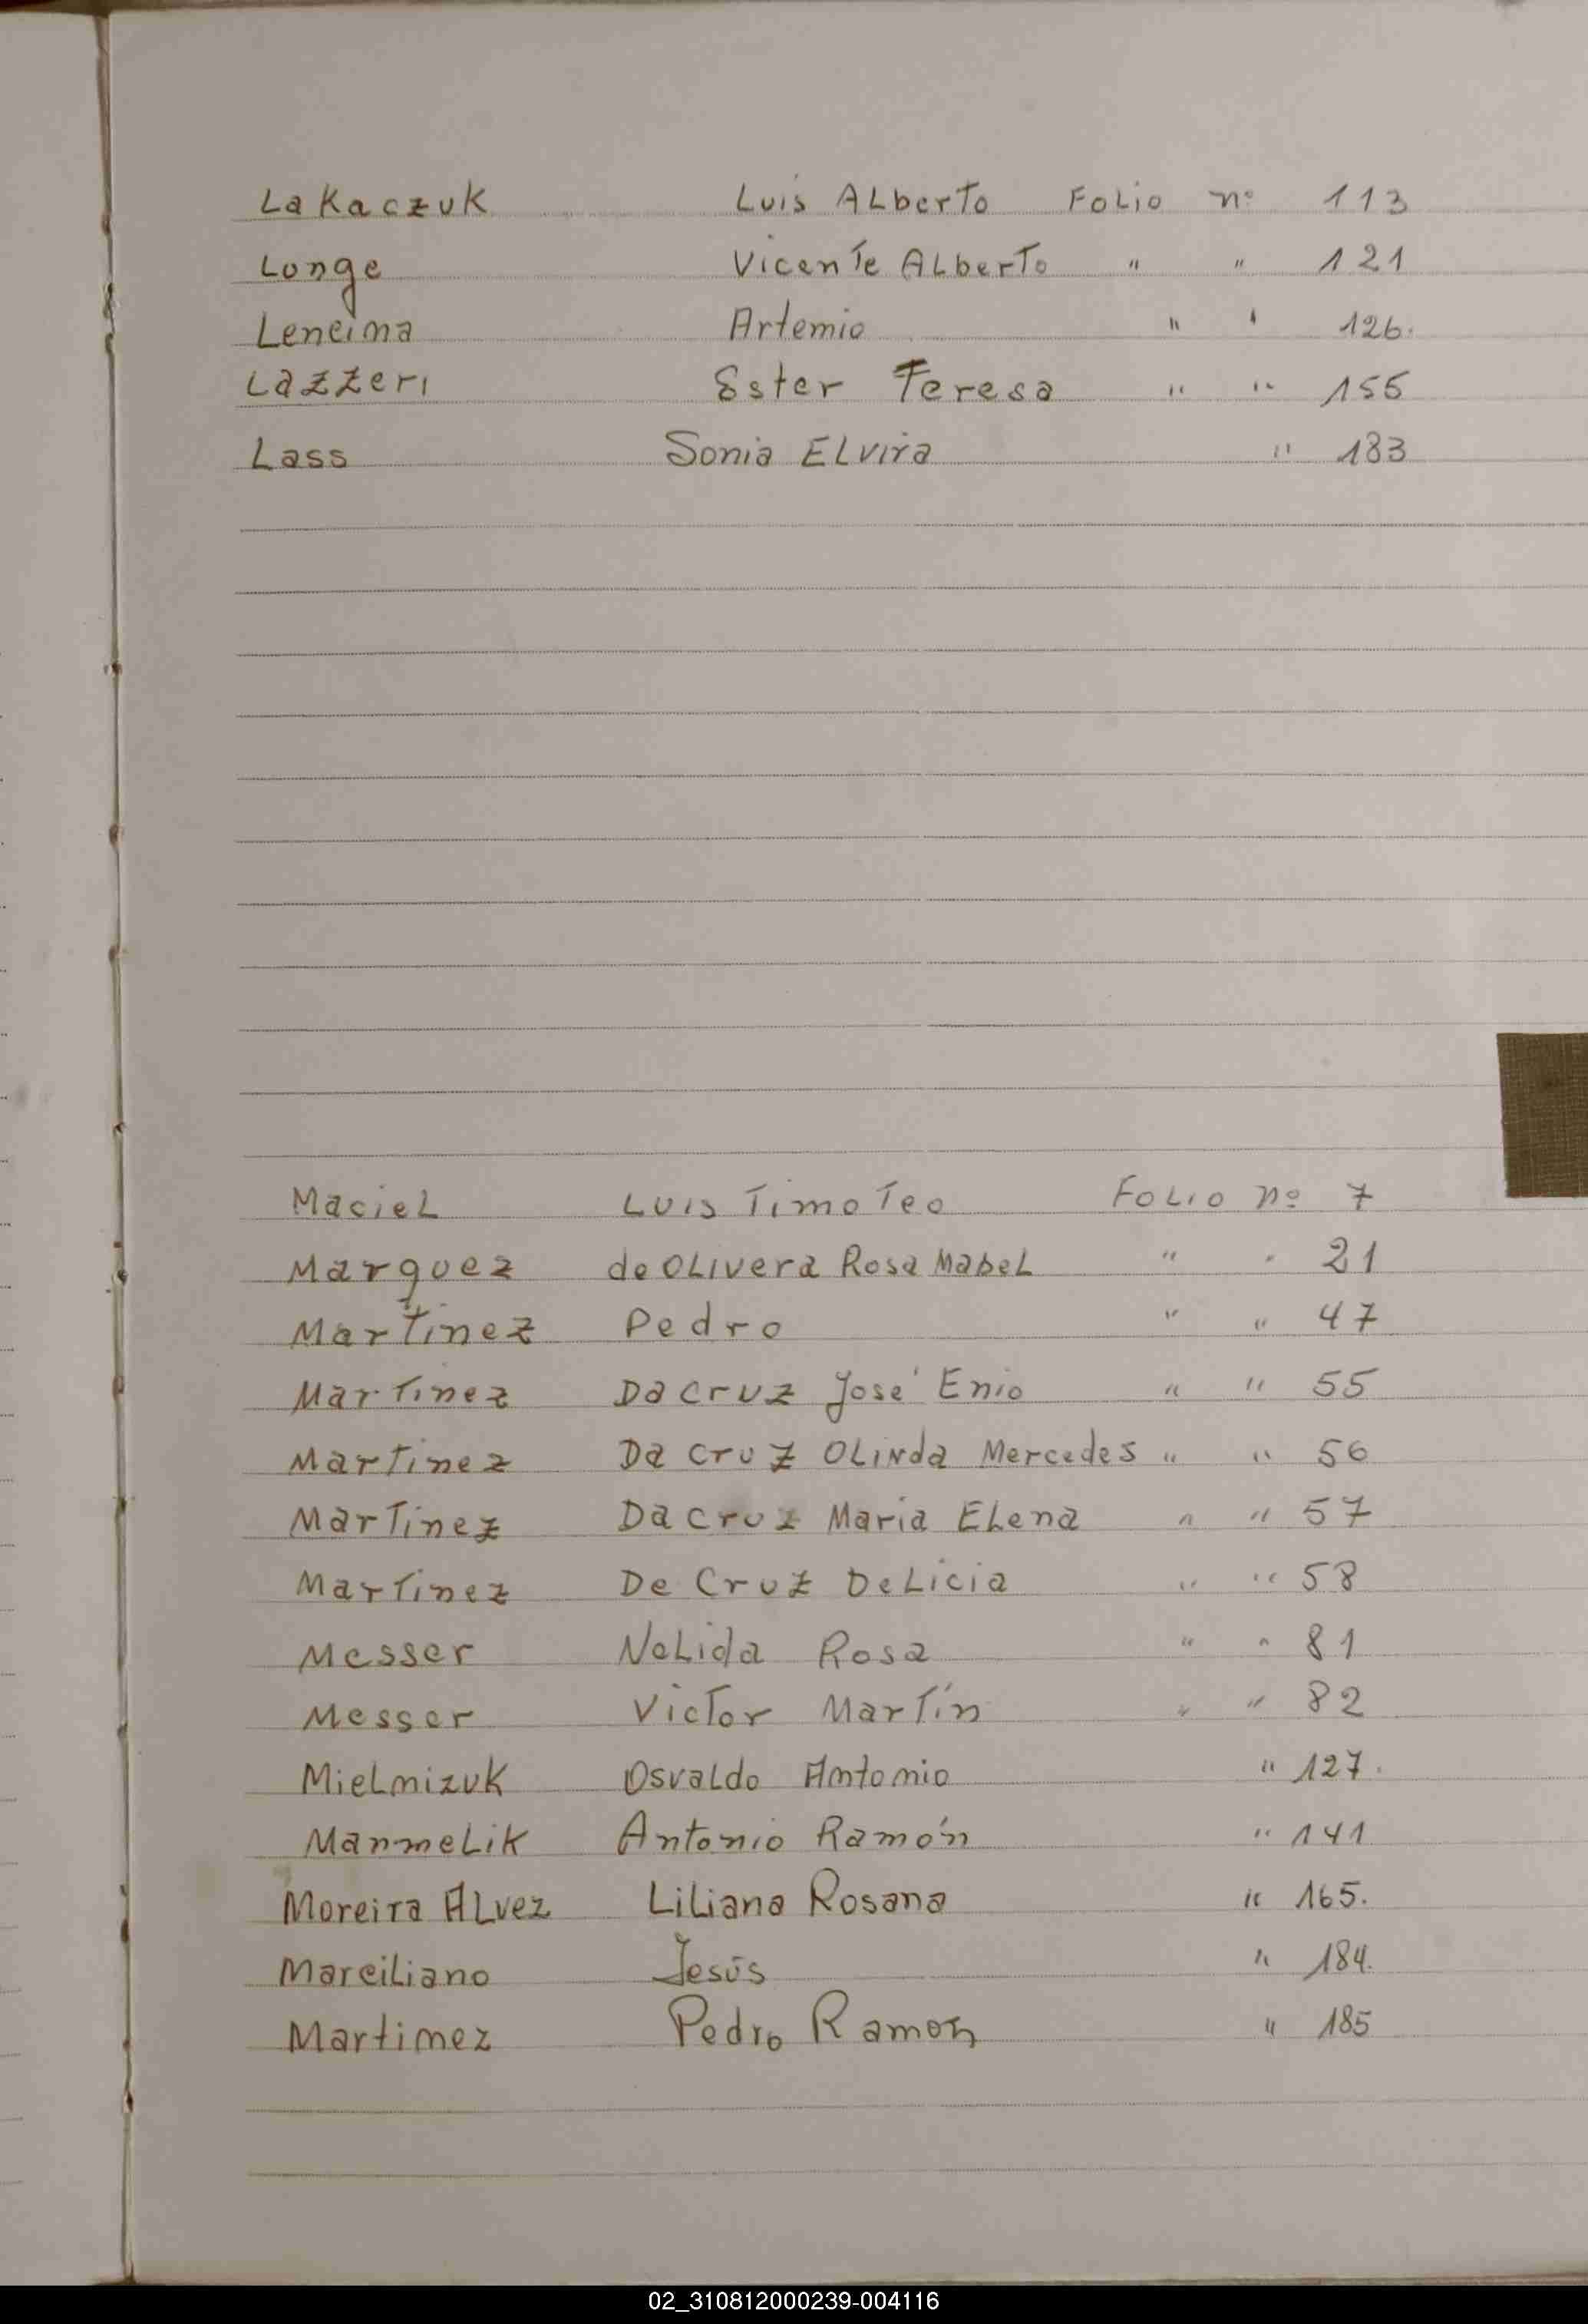 Lakaczuk Luis Alberto Folio nº 113
Longe Vicente Alberto " " 121
Leneima Artemio " ' 126.
Lazzeri Ester Teresa " " 155
Lass Sonia Elvira " 183
Maciel Luis Timoteo Folio nº 7
Marquez de Olivera Rosa Mabel " " 21
Martinez Pedro " " 47
Martinez Da Cruz José Enio " " 55
Martinez Da Cruz Olinda Mercedes " " 56
Martinez Da Cruz Maria Elena " " 57
Martinez De Cruz Delicia " " 58
Messer Nelida Rosa " " 81
Messer Victor Martín " " 82
Mielnizuk Osvaldo Antonio " 127.
Manmelik Antonio Ramón " 141
Moreira Alvez Liliana Rosana " 165.
Marciliano Jesús " 184.
Martimez Pedro Ramon " 185
02_310812000239-004116